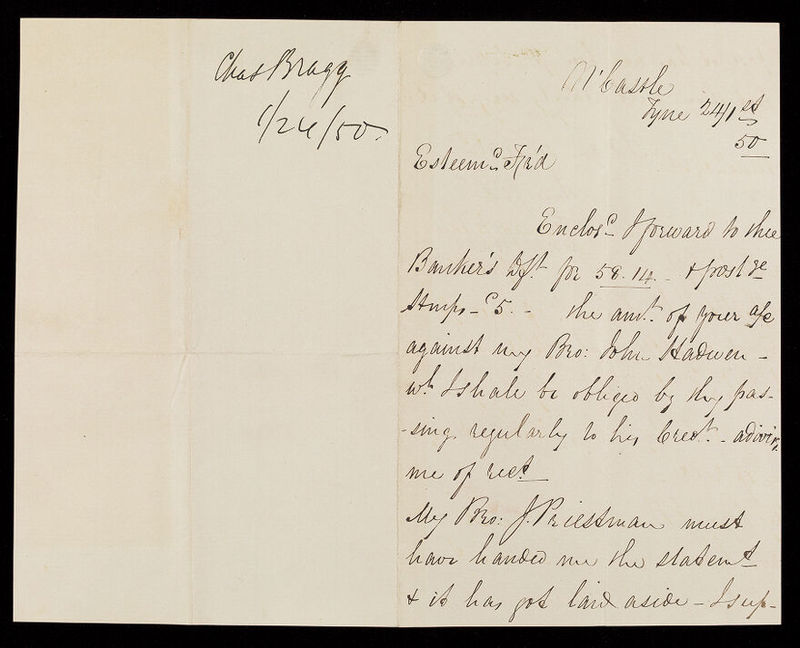 Chas Bragg
1/24/50.
N'Castle
Tyne 24/1st
50
Esteemd Fr'd
Enclosd I forward to thee
Banker's Dft for 58.14 - & post ge
Stmps - 5. - the amt. of your a/c
against my Bro: John Hadwen -
wh I shall be obliged by thy pas-
-sing regularly to his Credt. - advisg
me of rect
My Bro: J. Priestman must
have handed me the statemt
& it has got laid aside - I sup-